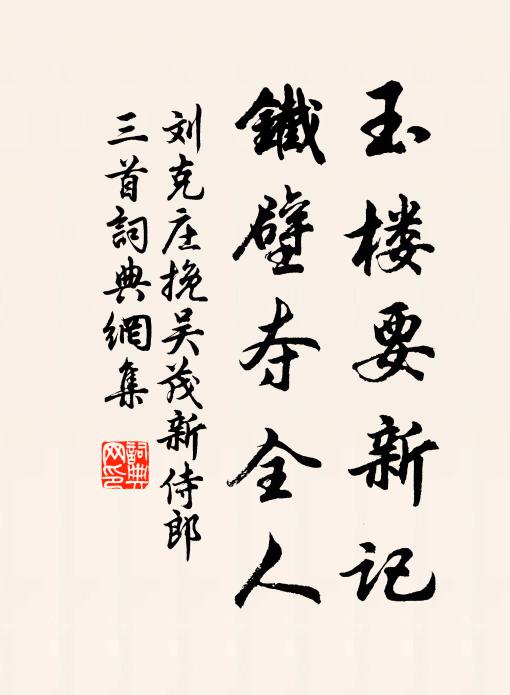 玉楼要新记
鐵壁夺全人
刘克庄挽吴茂新侍郎
三首詞典網集
詞典
网印